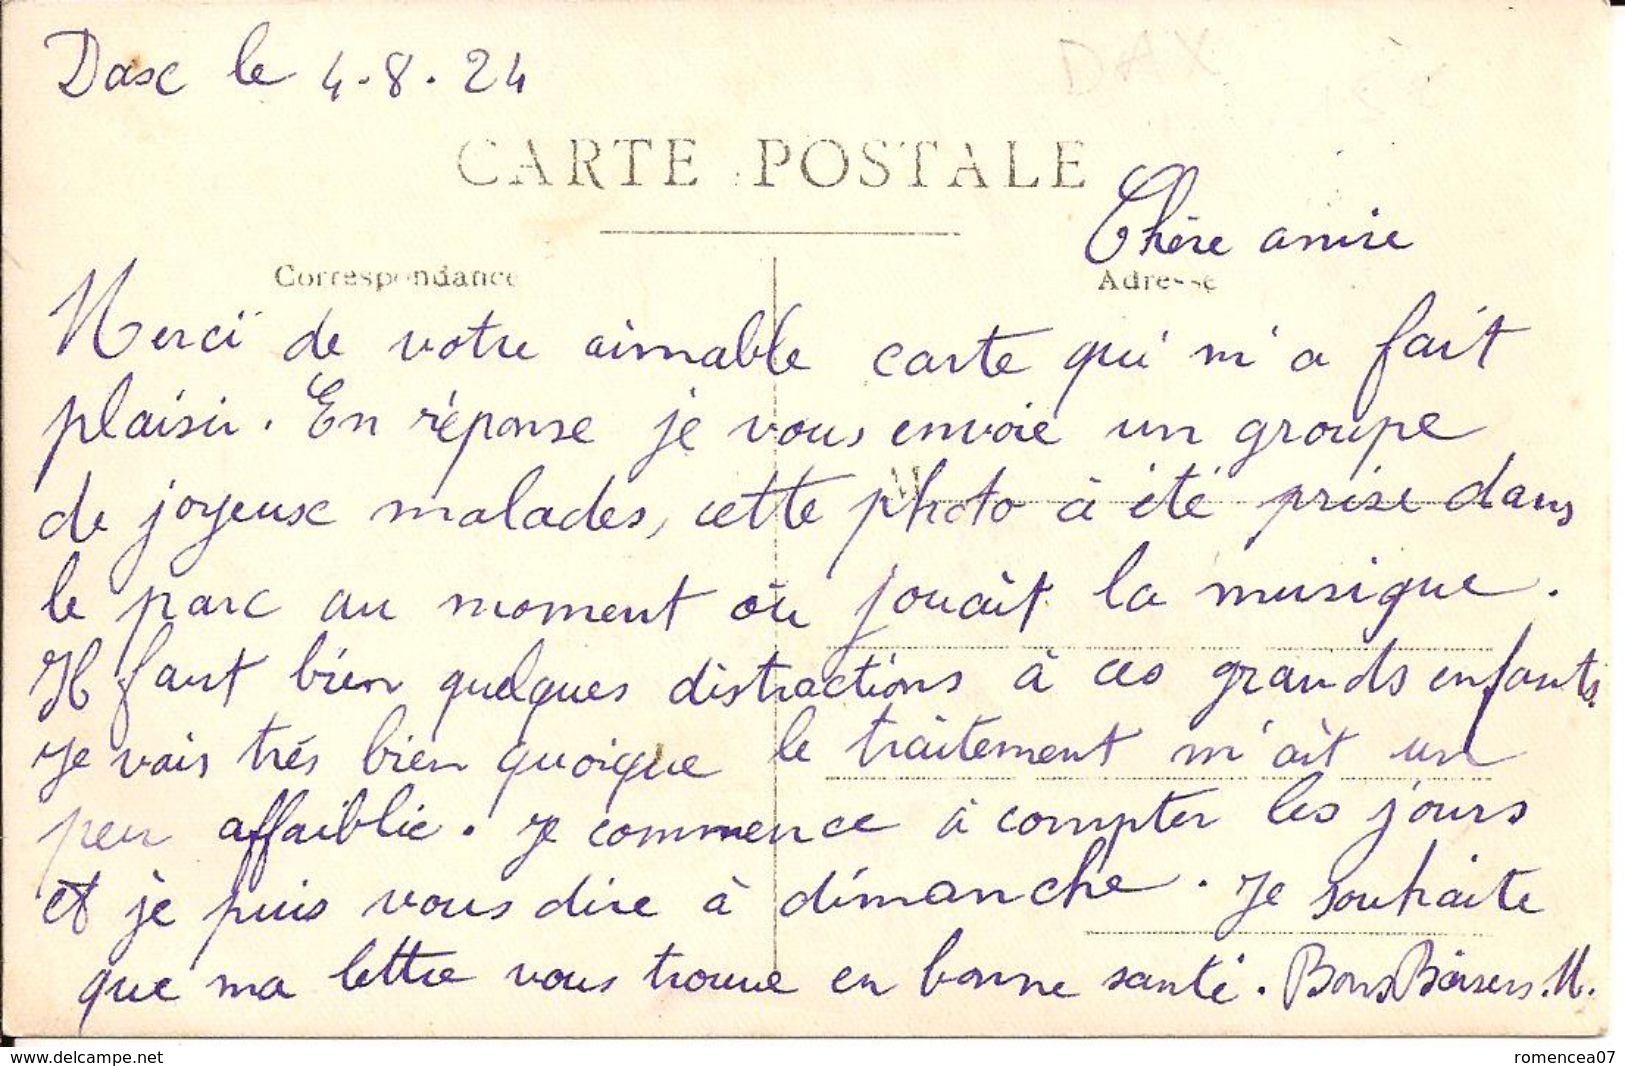 Dax le 4-8-24
DAX
CARTE POSTALE
Chère amie
Correspondance
Adresse
Merci de votre aimable carte qui m'a fait
plaisir. En réponse je vous envoie un groupe
de joyeuse malades, cette photo à été prise dans
le parc au moment où jouait la musique.
Il faut bien quelques distractions à ces grands enfants.
Je vais très bien quoique le traitement m'ait un
peu affaiblie. Je commence à compter les jours
et je puis vous dire à dimanche. Je souhaite
que ma lettre vous trouve en bonne santé. Bons Baisers. M.
www.delcampe.net
romencea07